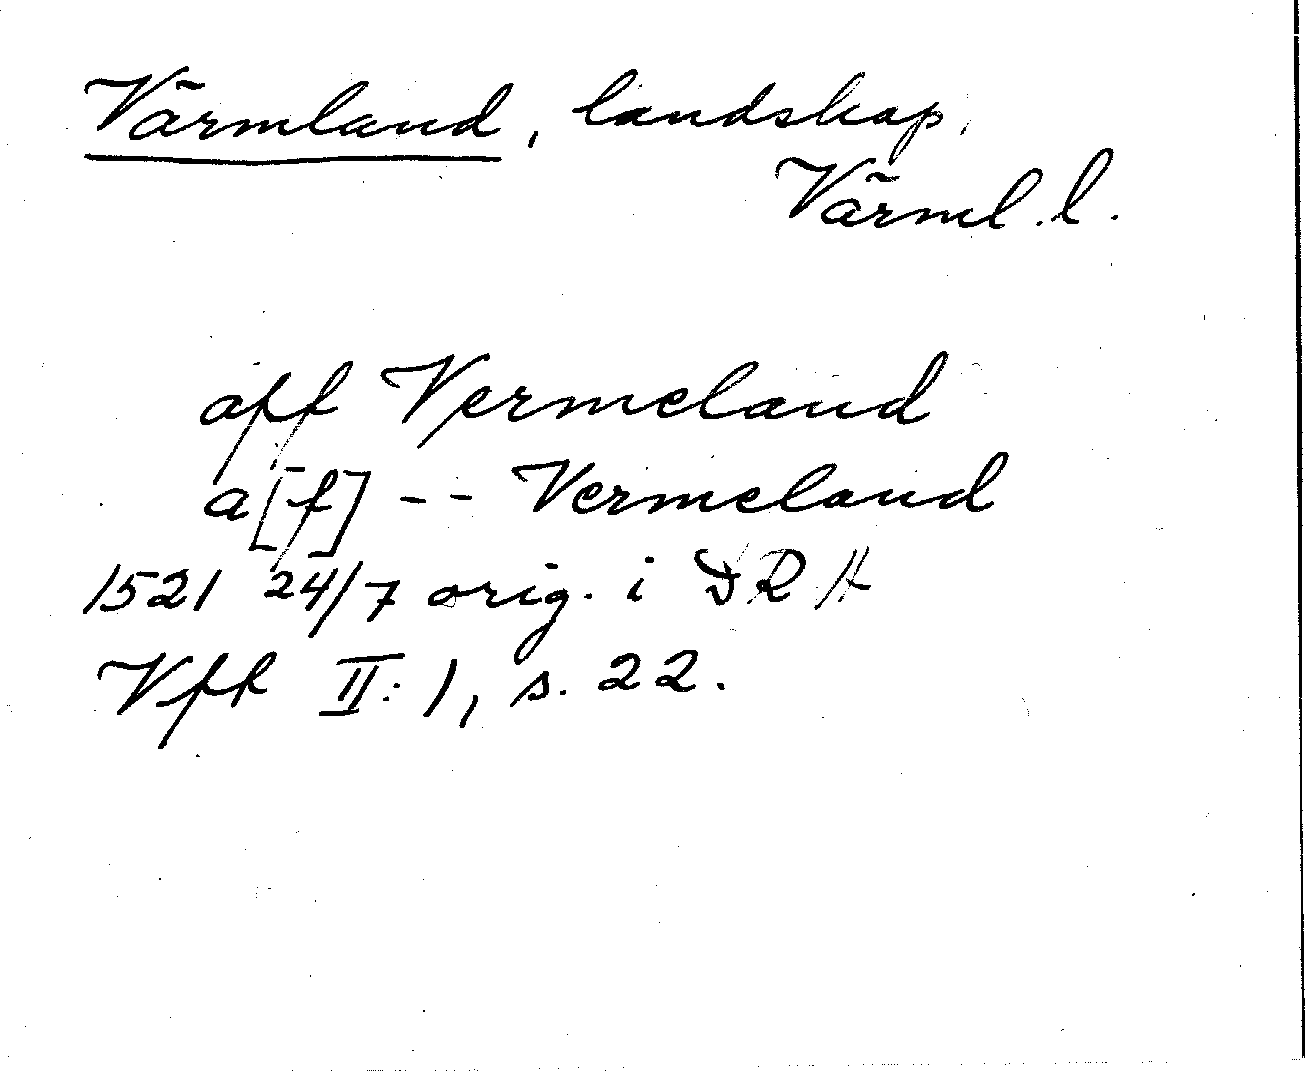 Värmland, landskap,
Värml. l.
aff Vermeland
a[f] -- Vermeland
1521 24/7 orig. i DRA
Vfk II:1, s. 22.